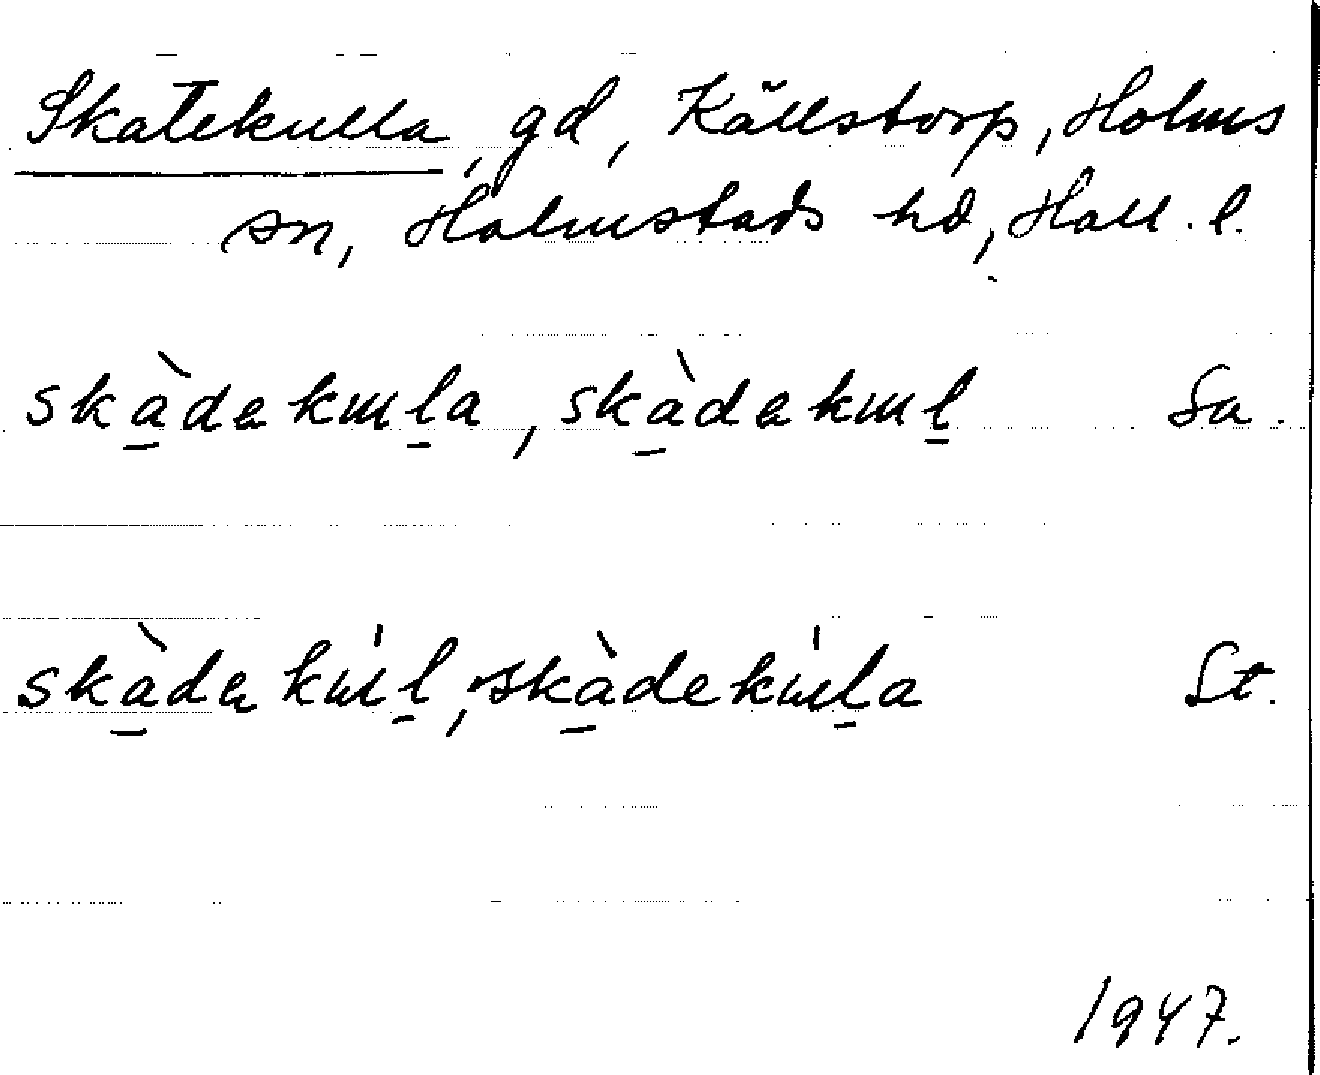 Skatekulla, gd, Källstorp, Holms
sn, Halmstads hd, Hall. l.
skà̱dekɯl̲a, skà̱dekɯl̲ Sa.
skà̱dekɯ́l̲, skà̱dekɯ́l̲a St.
1947.